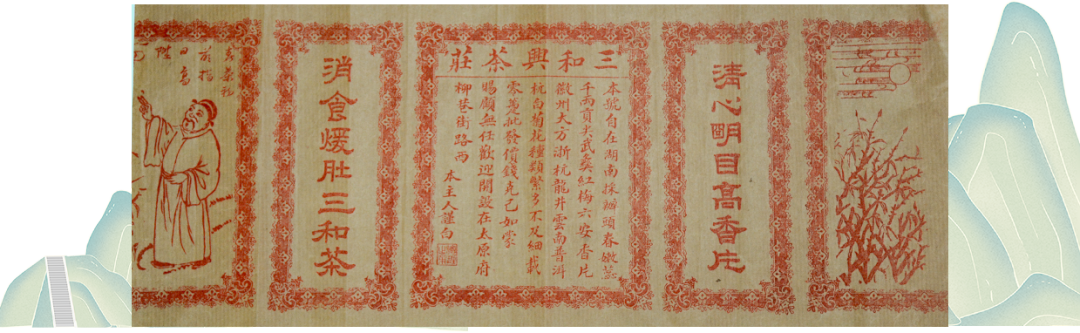 清心明目高香片
三和興茶莊
本號自在湖南採辦頭春嫩蕊
千兩貢尖武彝紅梅六安香片
徽州大方浙杭龍井雲南普洱
杭白菊花種類繁多不及細載
零躉批發價錢克己如蒙
賜顧無任歡迎開設在太原府
柳巷街路西 本主人謹白
消食煖肚三和茶
前指
日高
陞